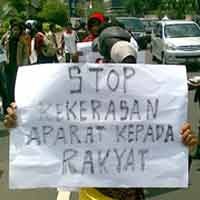 STOP
KEKERASAN
APARAT KEPADA
RAKYAT